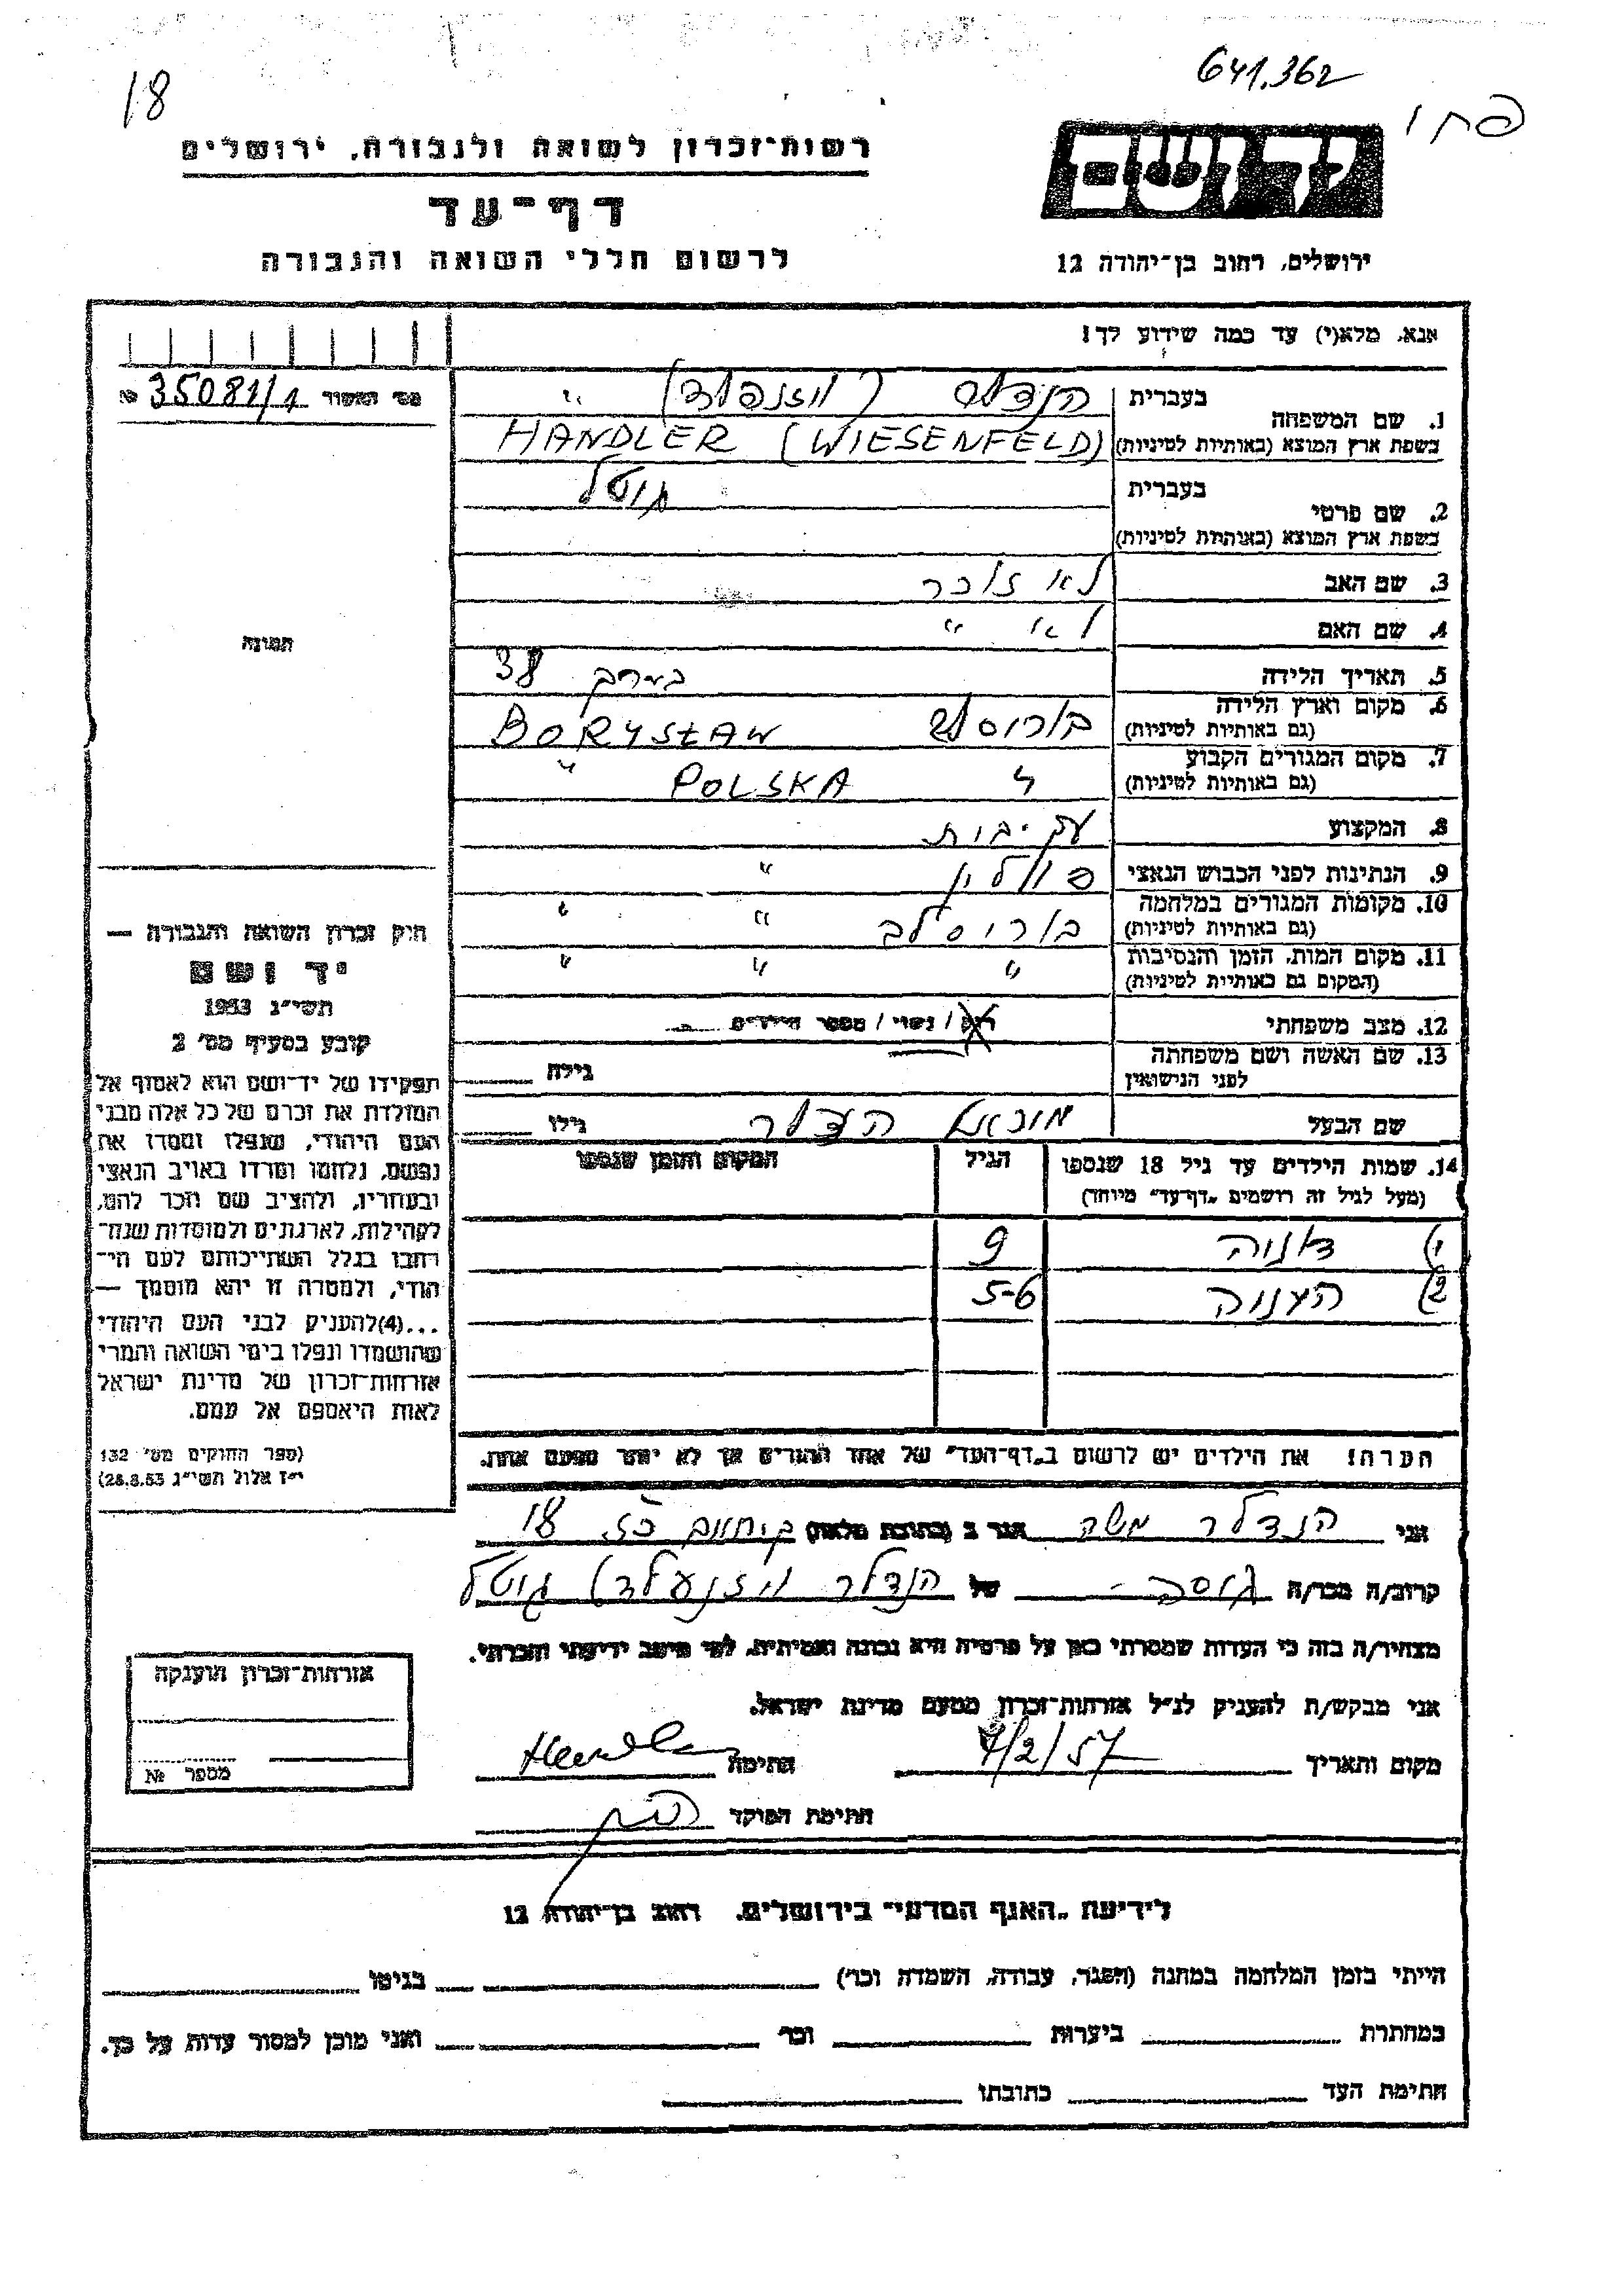 641.362
18
רשות־זכרון לשואה ולגבורה, ירושלים
דף־עד
לרשום חללי השואה והגבורה
ידושם
ירושלים, רחוב בן־יהודה 12
אנא, מלא(י) עד כמה שידוע לך!
35081/1 №
1. שם המשפחה
בעברית
הנדלר
בשפת ארץ המוצא (באותיות לטיניות) HANDLER (WIESENFELD)
2. שם פרטי
בעברית גוסטל
בשפת ארץ המוצא (באותיות לטיניות)
3. שם האב לא זוכר
4. שם האם לא "
5. תאריך הלידה בערך 38
6. מקום וארץ הלידה
(גם באותיות לטיניות) בוריסלב BORYSŁAW
7. מקום המגורים הקבוע
(גם באותיות לטיניות) " POLSKA "
8. המקצוע עק. בית
9. הנתינות לפני הכבוש הנאצי פולין "
10. מקומות המגורים במלחמה
(גם באותיות לטיניות) בוריסלב " "
11. מקום המות, הזמן והנסיבות
(המקום גם באותיות לטיניות) " " "
12. מצב משפחתי רוק / נשוי / מספר הילדים
13. שם האשה ושם משפחתה
לפני הנישואין
גילה
שם הבעל
הנדלר
גילו
14. שמות הילדים עד גיל 18 שנספו
(מעל לגיל זה רושמים „דף־עד" מיוחד)
הגיל
המקום והזמן שנספו
1) דנוה 9
2) הענוה 5-6
הערה! את הילדים יש לרשום ב„דף־העד" של אחד ההורים אך לא יותר מפעם אחת.
תמונה
חוק זכרון השואה והגבורה —
יד ושם
תשי"ג 1953
קובע בסעיף מס' 2
תפקידו של יד־ושם הוא לאסוף אל
המולדת את זכרם של כל אלה מבני
העם היהודי, שנפלו ומסרו את
נפשם, נלחמו ומרדו באויב הנאצי
ובעוזריו, ולהציב שם וזכר להם,
לקהילות, לארגונים ולמוסדות שנח־
רבו בגלל השתייכותם לעם הי־
הודי, ולמטרה זו יהא מוסמך —
...(4)להעניק לבני העם היהודי
שהושמדו ונפלו בימי השואה והמרי
אזרחות־זכרון של מדינת ישראל
לאות היאספם אל עמם.
(ספר החוקים מס' 132
י"ז אלול תשי"ג 28.8.53)
אני הנדלר משה הגר ב (כתובת מלאה) 18
קרוב/ה מכר/ה גיסה - של הנדלר גוסטל
מצהיר/ה בזה כי העדות שמסרתי כאן על פרטיה היא נכונה ואמיתית, לפי מיטב ידיעתי והכרתי.
אני מבקש/ת להעניק לנ"ל אזרחות־זכרון מטעם מדינת ישראל.
מקום ותאריך 7/2/57 חתימה
חתימת הפוקד
אזרחות־זכרון הוענקה
מספר №
לידיעת „האגף המדעי" בירושלים, רחוב בן־יהודה 12
הייתי בזמן המלחמה במחנה (הסגר, עבודה, השמדה וכו') בגיטו
במחתרת ביערות וכו' ואני מוכן למסור עדות על כך.
חתימת העד כתובתו